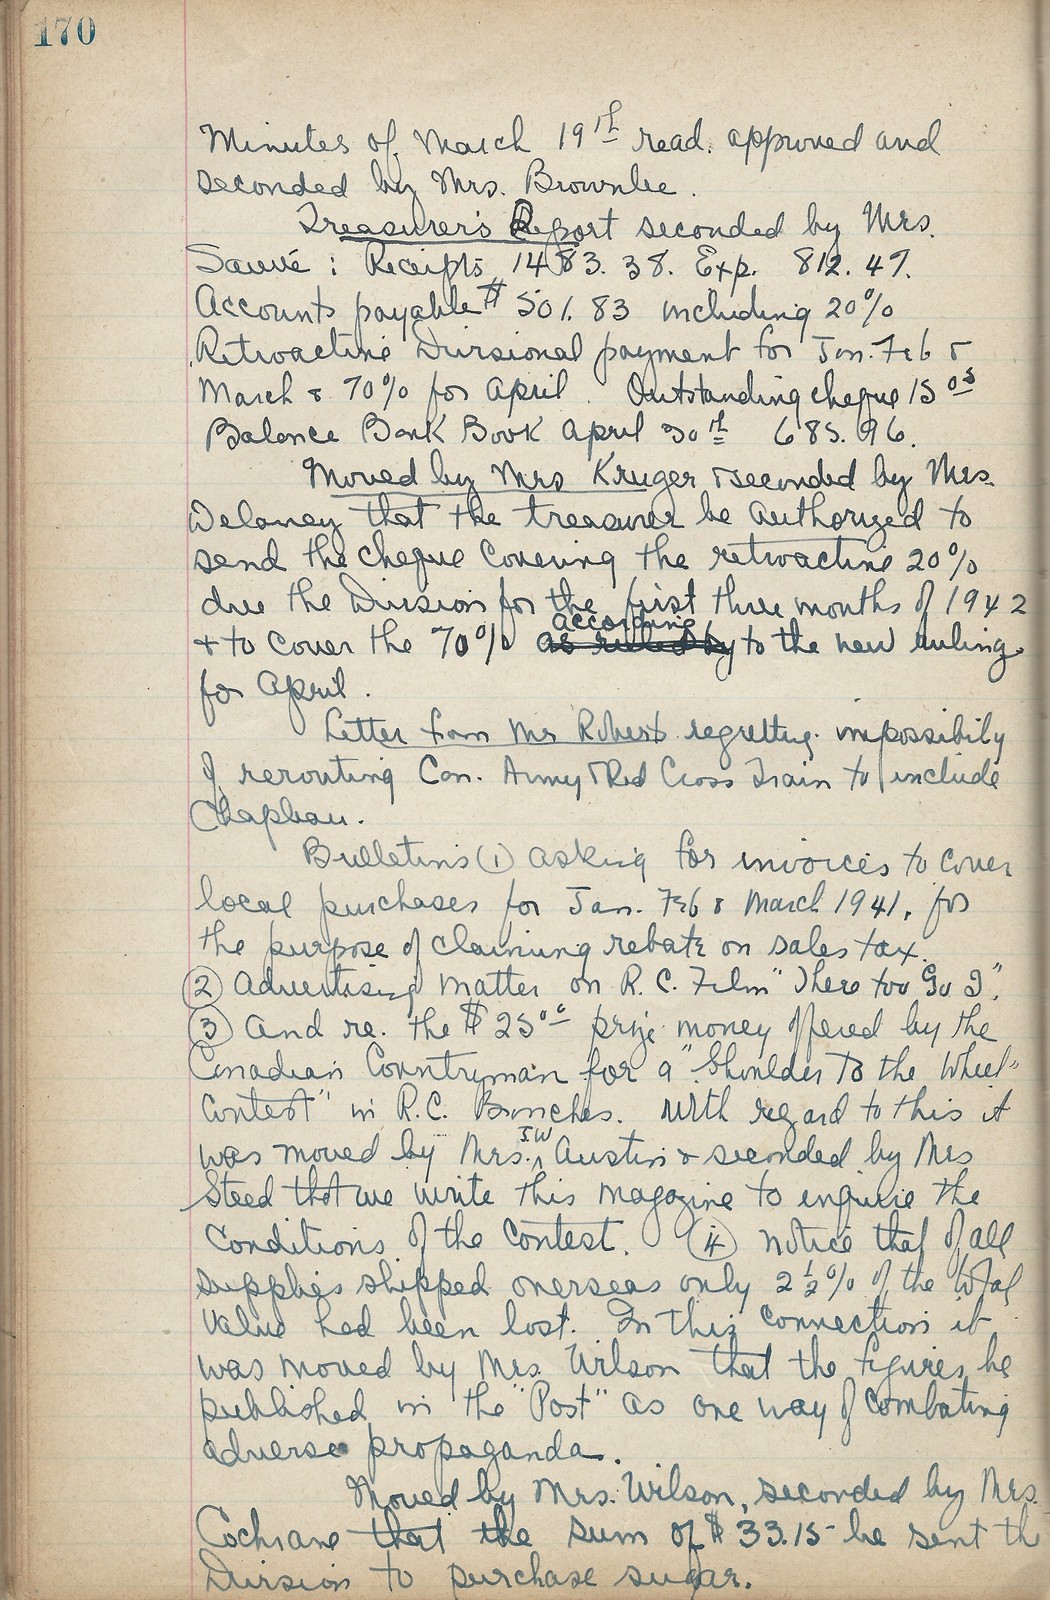 170
Minutes of March 19th read, approved and
seconded by Mrs. Brownlee.
Treasurer's Report seconded by Mrs.
Sauvé : Receipts 1483.38. Exp. 812.47.
Accounts payable $501.83 including 20%
Retroactive Divisional payment for Jan. Feb &
March & 70% for April. Outstanding cheque 15
Balance Bank Book April 30th 685.96.
Moved by Mrs Kruger & seconded by Mrs.
Delaney that the treasurer be authorized to
send the cheque covering the retroactive 20%
due the Division for the first three months of 1942
according
& to cover the 70% as ruled by to the new ruling
for April.
Letter from Mr Robert regretting impossibily
of rerouting Can. Army & Red Cross Train to include
Chapleau.
Bulletins (1) asking for invoices to cover
local purchases for Jan. Feb & March 1941, for
the purpose of claiming rebate on sales tax.
(2) Advertising matter on R.C. Film "There too Go I".
(3) And re. the $25 prize money offered by the
Canadian Countryman for a "Shoulder to the Wheel"
Contest" in R.C. Branches. With regard to this it
was moved by Mrs. J W Austin & seconded by Mrs
Steed that we write this magazine to enquire the
Conditions of the Contest. (4) Notice that of all
supplies shipped overseas only 2½% of the total
value had been lost. In this connection it
was moved by Mrs. Wilson that the figures be
published in the "Post" as one way of combating
adverse propaganda.
Moved by Mrs. Wilson, seconded by Mrs.
Cochrane that the sum of $33.15 be sent the
Division to purchase sugar.